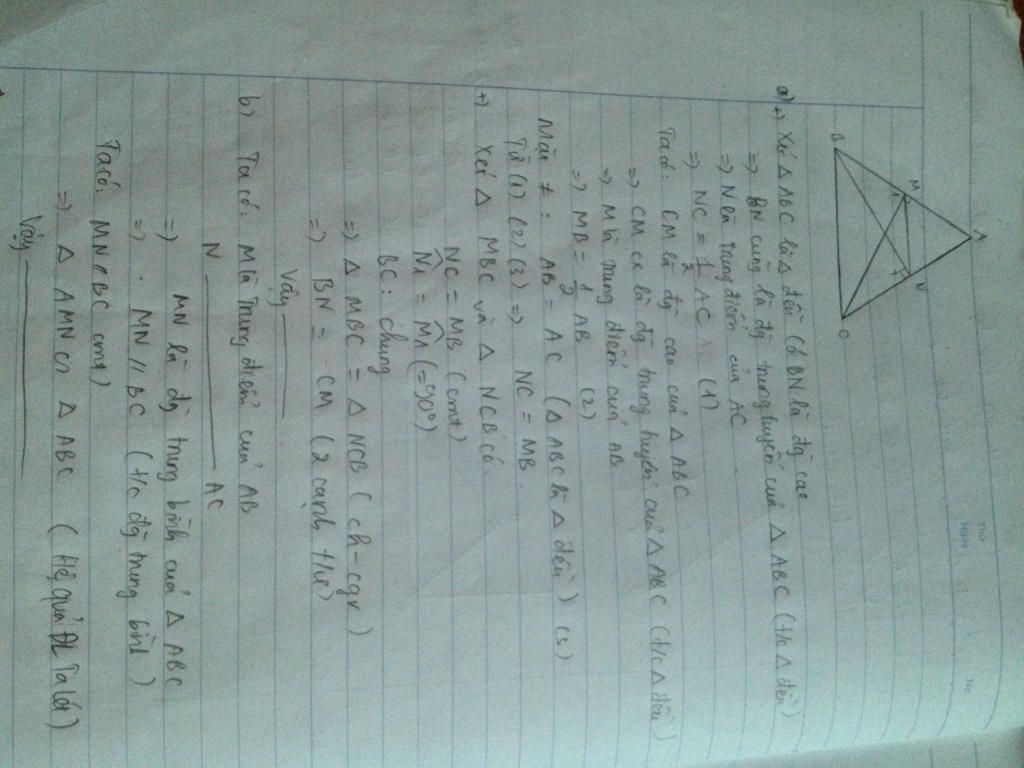 Thứ
Ngày
No
A
M
N
1
1
B
C
a) +) Xét △ ABC là △ đều (có BN là đg cao
=> BN cũng là đg trung tuyến của △ ABC (t/c △ đều)
=> N là trung điểm của AC
=> NC = 1/2 AC (1)
Ta có: CM là đg cao của △ ABC
=> CM là đg trung tuyến của △ ABC (t/c △ đều)
=> M là trung điểm của AB
=> MB = 1/2 AB (2)
Mặt ≠ : AB = AC (△ ABC là △ đều) (3)
Từ (1) (2) (3) => NC = MB
+) Xét △ MBC và △ NCB có
NC = MB (cmt)
N̂1 = M̂1 (=90°)
BC : chung
=> △ MBC = △ NCB (ch-cgv)
=> BN = CM (2 cạnh t/ư)
Vậy
b) Ta có: M là trung điểm của AB
N AC
=> MN là đg trung bình của △ ABC
=> MN // BC (t/c đg trung bình)
Ta có: MN // BC cmt)
=> △ AMN ∽ △ ABC (Hệ quả ĐL Talét)
Vậy